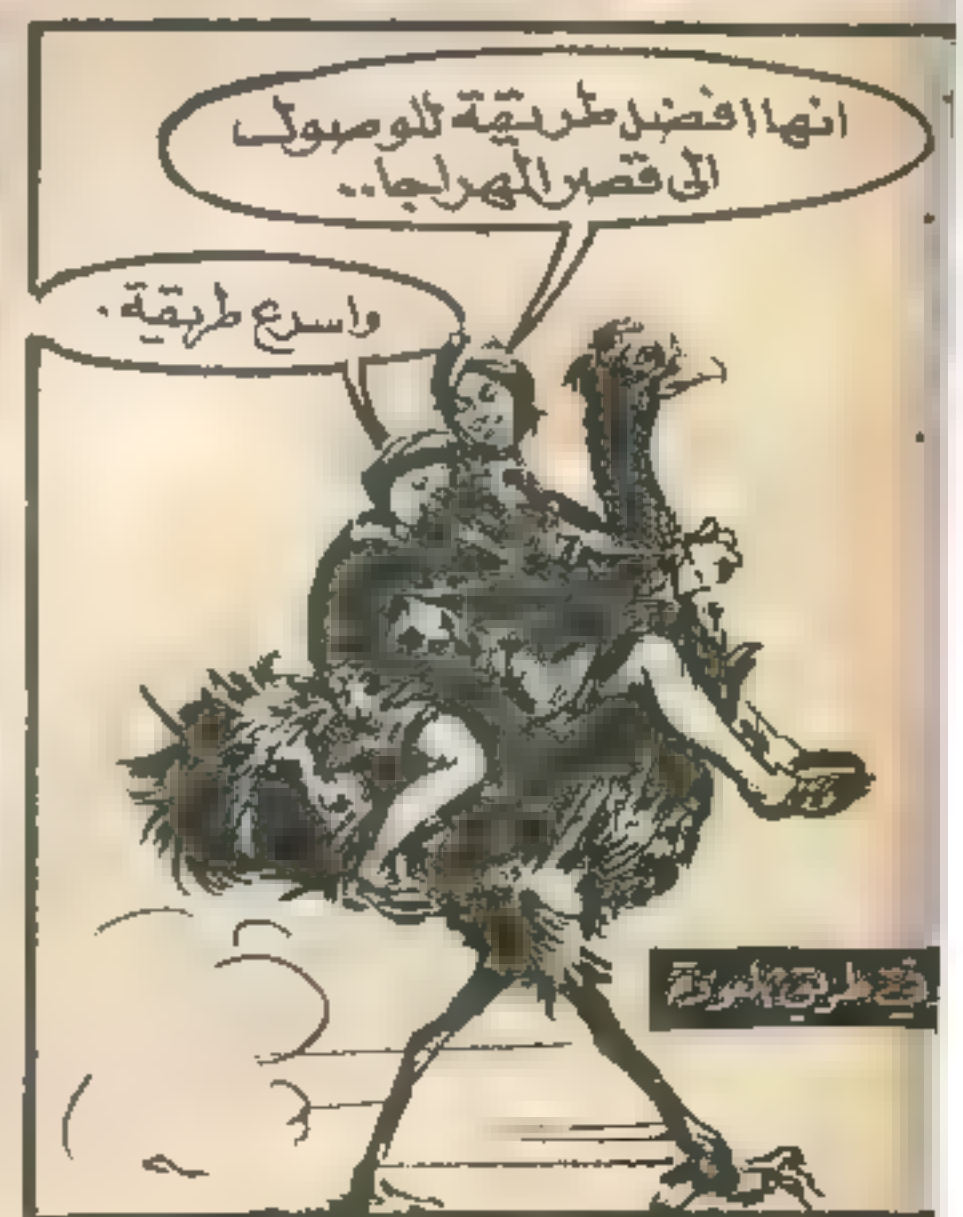 انها افضل طريقة للوصول
الى قصر المهراجا..
واسرع طريقة.
في طريق العودة